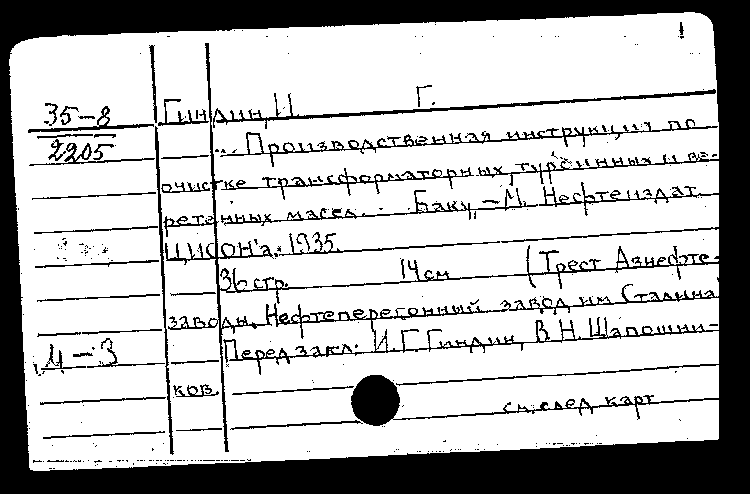 1
35-8 Гиндин, И. Г.
2205 ... Производственная инструкция по
очистке трансформаторных, турбинных и ве-
ретенных масел. . . Баку, -М. Нефтеиздат.
ЦИСОН'а. 1935.
36 стр. 14 см (Трест Азнефте-
заводы. Нефтеперегонный завод им Сталина
М-3 Перед загл: И.Г. Гиндин, В.Н. Шапошни-
ков.
см. след карт